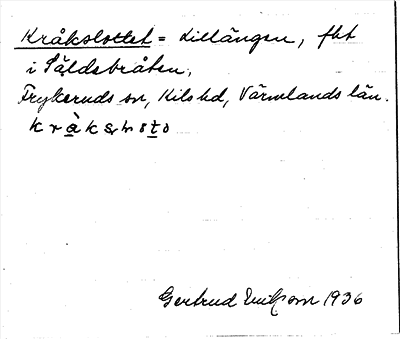 Kråkslottet = Lillängen, fht
i Säldebråten,
Frykeruds sn, Kils hd, Värmlands län.
Gertrud Eriksson 1936